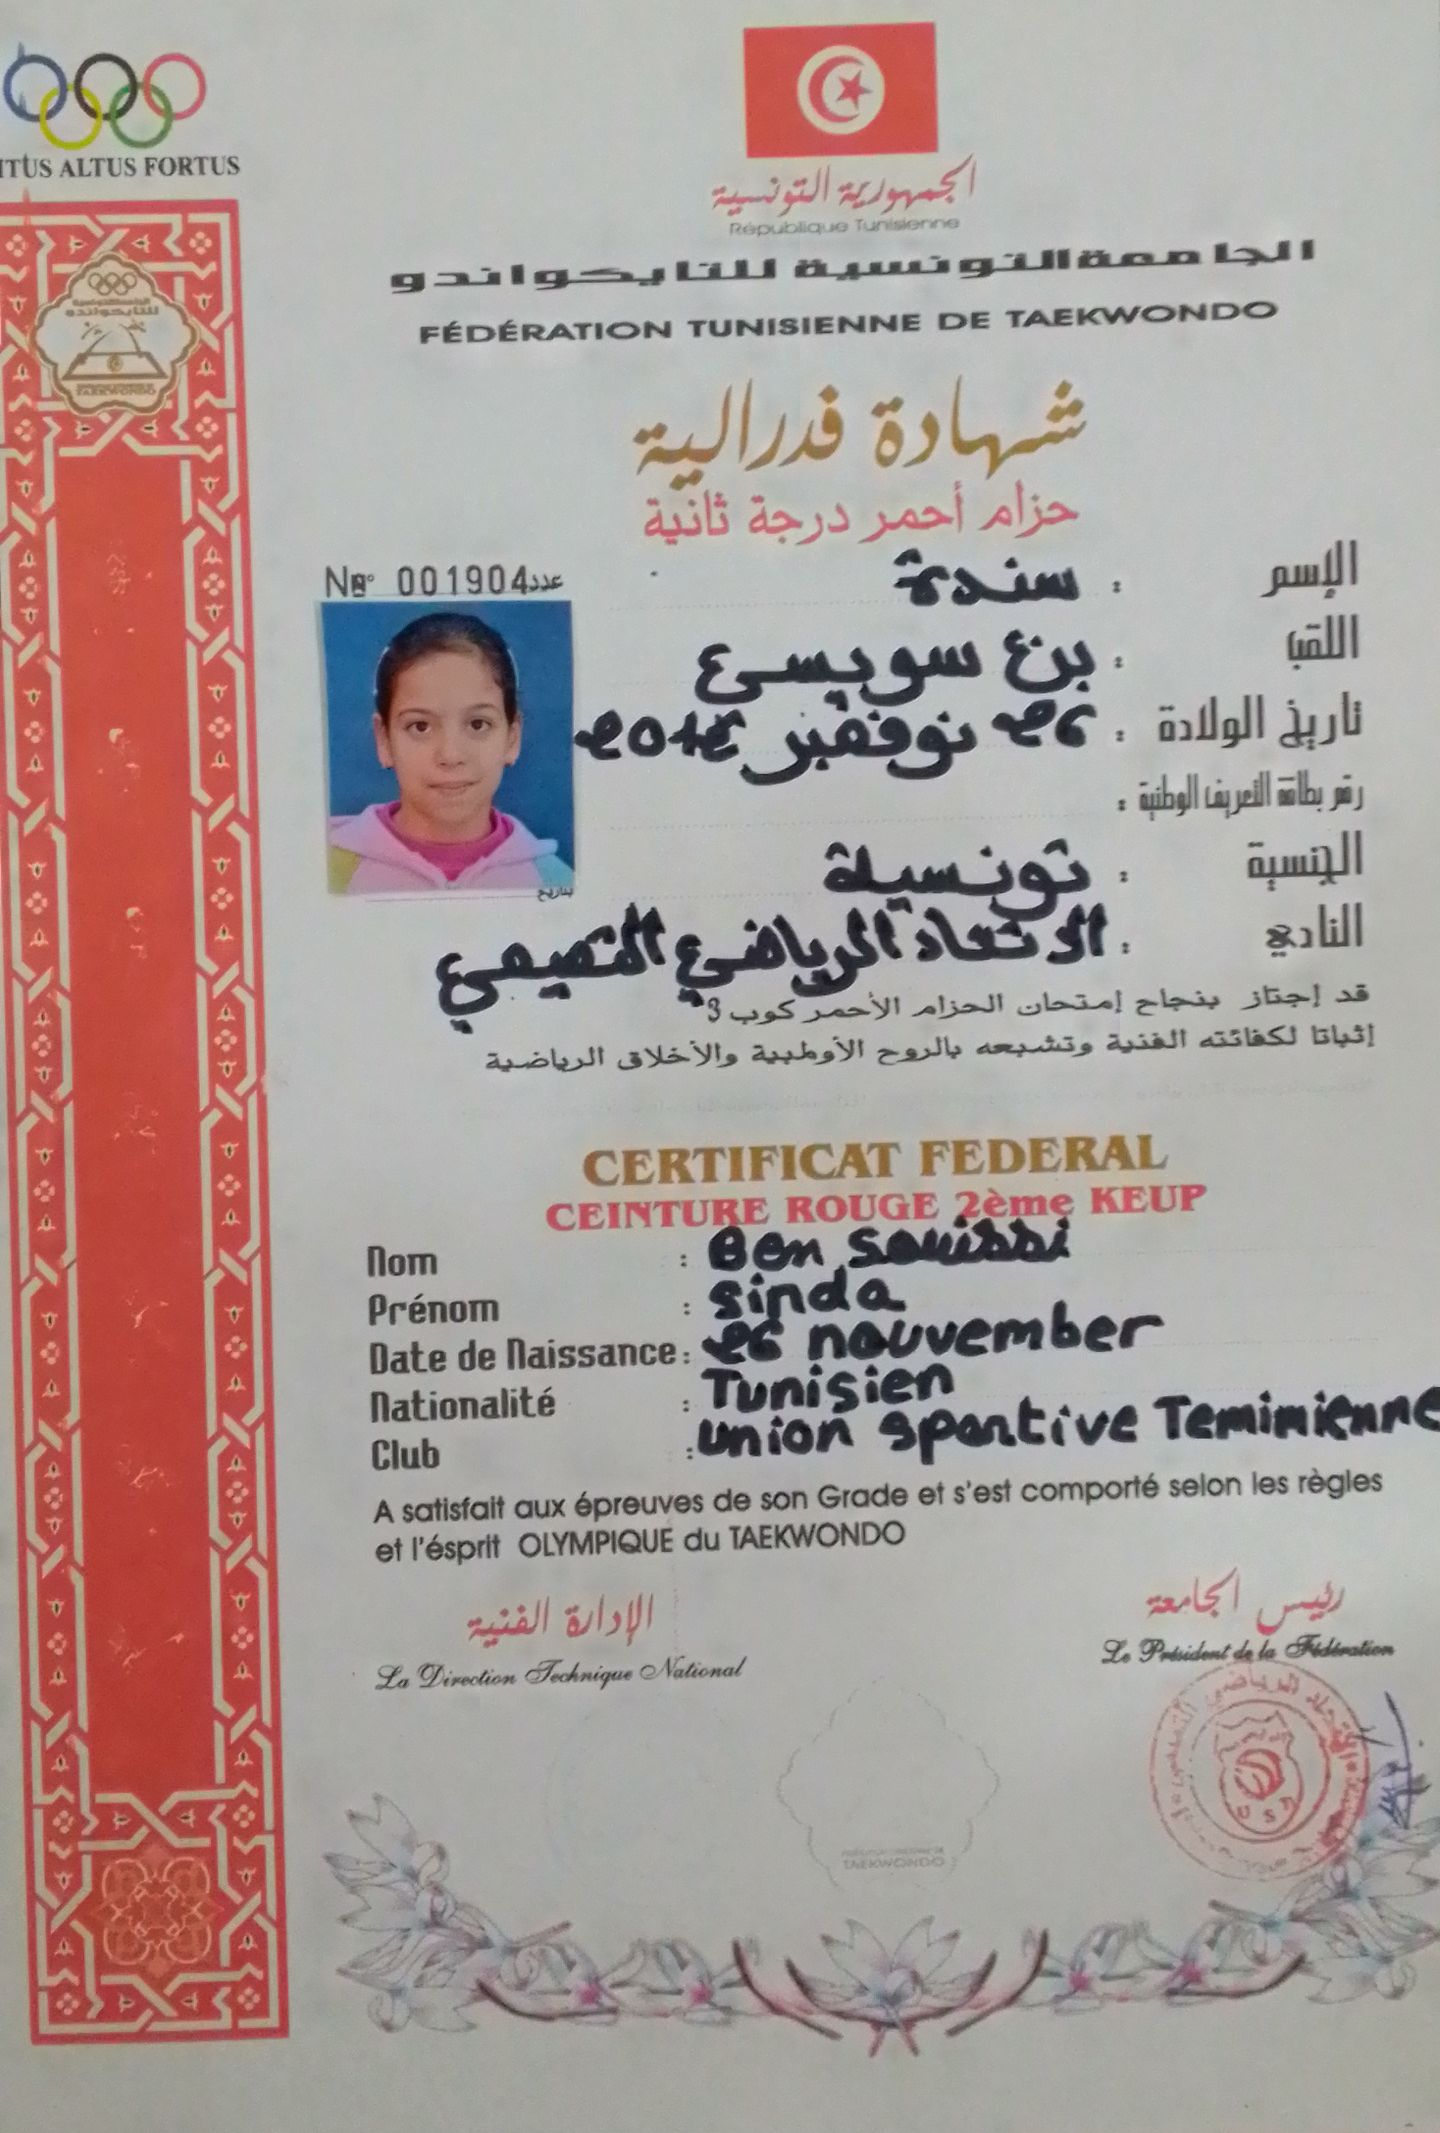 ITUS ALTUS FORTUS
الجمهورية التونسية
République Tunisienne
الجامعة التونسية للتايكواندو
FÉDÉRATION TUNISIENNE DE TAEKWONDO
شهادة فدرالية
حزام أحمر درجة ثانية
الإسم : سندة
No 001904 عدد
اللقب : بن سويسي
تاريخ الولادة : 26 نوفمبر
رقم بطاقة التعريف الوطنية :
الجنسية : تونسية
بتاريخ
النادي : الاتحاد الرياضي القصيبي
قد إجتاز بنجاح إمتحان الحزام الأحمر كوب 3
إثباتا لكفائته الفنية وتشبعه بالروح الأولمبية والأخلاق الرياضية
CERTIFICAT FEDERAL
CEINTURE ROUGE 2ème KEUP
Nom : Ben Souissi
Prénom : sinda
Date de Naissance : 26 nouvember
Nationalité : Tunisien
Club : union sportive Temimienne
A satisfait aux épreuves de son Grade et s'est comporté selon les règles
et l'ésprit OLYMPIQUE du TAEKWONDO
الإدارة الفنية
La Direction Technique National
رئيس الجامعة
Le Président de la Fédération
TAEKWONDO